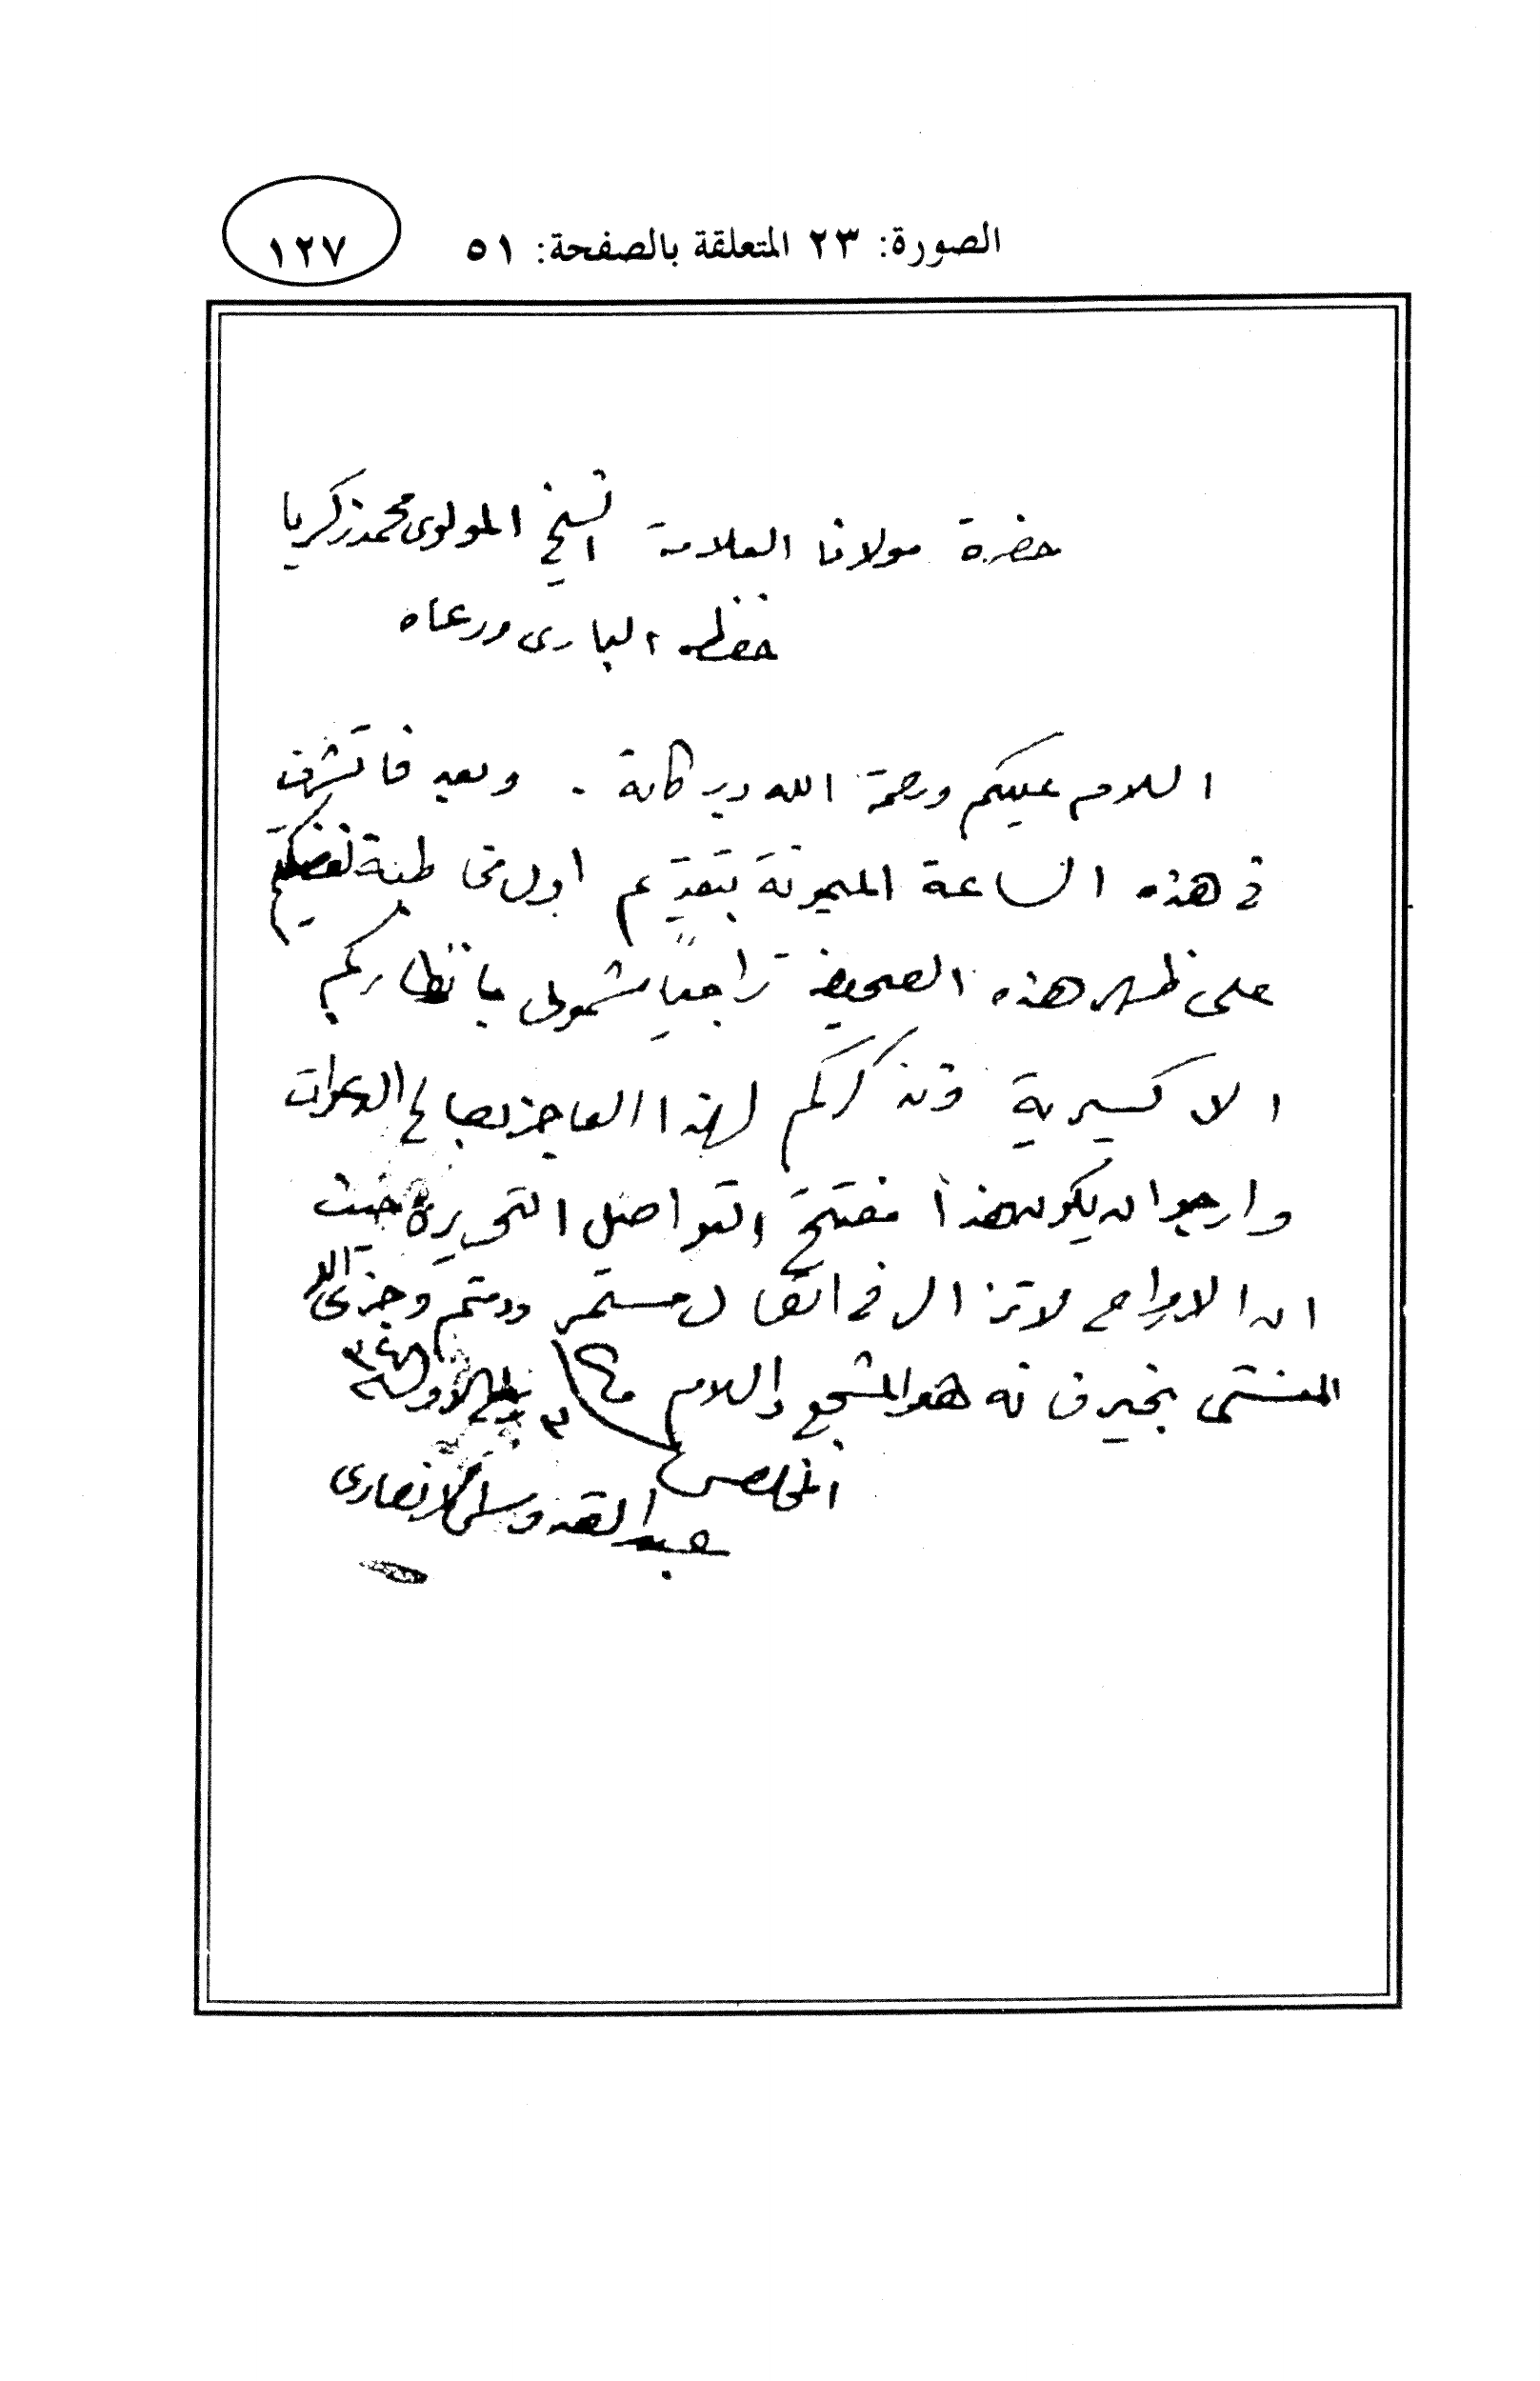 الصورة: ٢٣ المتعلقة بالصفحة: ٥١
١٢٧
حضرة مولانا العلامة الشيخ المولوى محمد زكريا
حفظه البارى ورعاه
السلام عليكم ورحمة الله وبركاته . وبعد فاتشرف
فى هذه الساعة الميمونة بتقديم اول مخاطبة لفضيلتكم
على ظهر هذه الصحيفة راجياً شمولى بانظاركم
الاكسيرية وتذكركم لهذا العاجز بصالح الدعوات
وارجو ان يكون هذا مفتتح التواصل التحريرى حيث
ان الارواح لا تزال فى اتصال مستمر ودمتم وجزى الله
المنتمى بخير فانه هو المشجع والسلام
المخلص
عبدالقدوس الانصارى